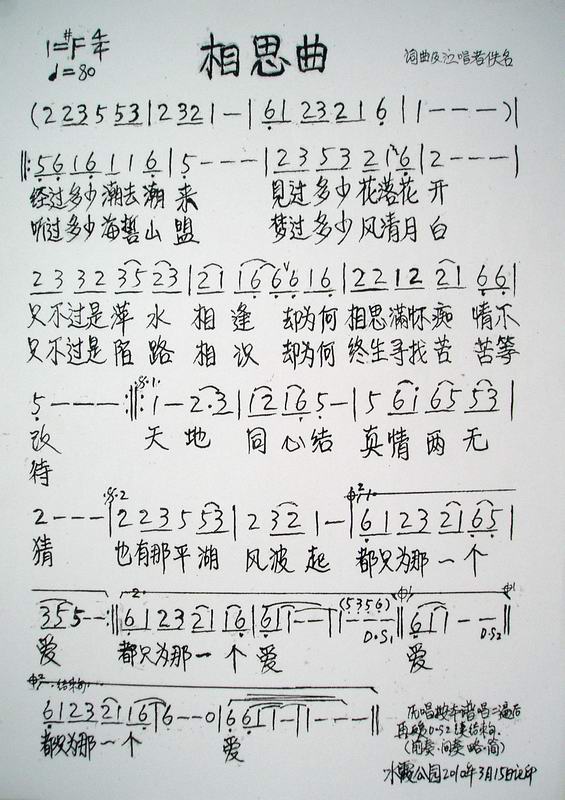 相思曲
1=#F 4/4
♩=80
词曲及泣唱者佚名
(2 2 3 5 5 3 | 2 3 2 1 - | 6 1 2 3 2 1 6 | 1 - - - )|
‖: 5 6 1 6 1 1 6 | 5 - - - | 2 3 5 3 2 1 6 | 2 - - - |
经过多少潮去潮来 见过多少花落花开
听过多少海誓山盟 梦过多少风清月白
2 3 3 2 3 5 2 3 | 2 1 1 6 6 6 1 6 | 2 2 1 2 2 1 6 6 |
只不过是萍水相逢 却为何相思满怀痴情不
只不过是陌路相识 却为何终生寻找苦苦等
5 - - - :‖: 1 - 2 · 3 | 1 2 1 6 5 - | 5 6 i 6 5 5 3 |
改 天地同心结 真情两无
待
2 - - - | 2 2 3 5 5 3 | 2 3 2 1 - | 6 1 2 3 2 1 6 5 |
猜 也有那平湖风波起 都只为那一个
3 5 5 - - :‖ 6 1 2 3 2 1 1 6 | 6 1 1 - - | 1 - - - (5 3 5 6) D·S1 ‖ 6 1 1 - - D·S2 ‖
爱 都只为那一个爱 爱
结束句
6 1 2 3 2 1 1 6 | 6 - - 0 | 6 6 1 1 - | 1 - - - ‖
都只为那一个 爱
再
(前奏·间奏略·简)
水霞公园2010年3月15日记印